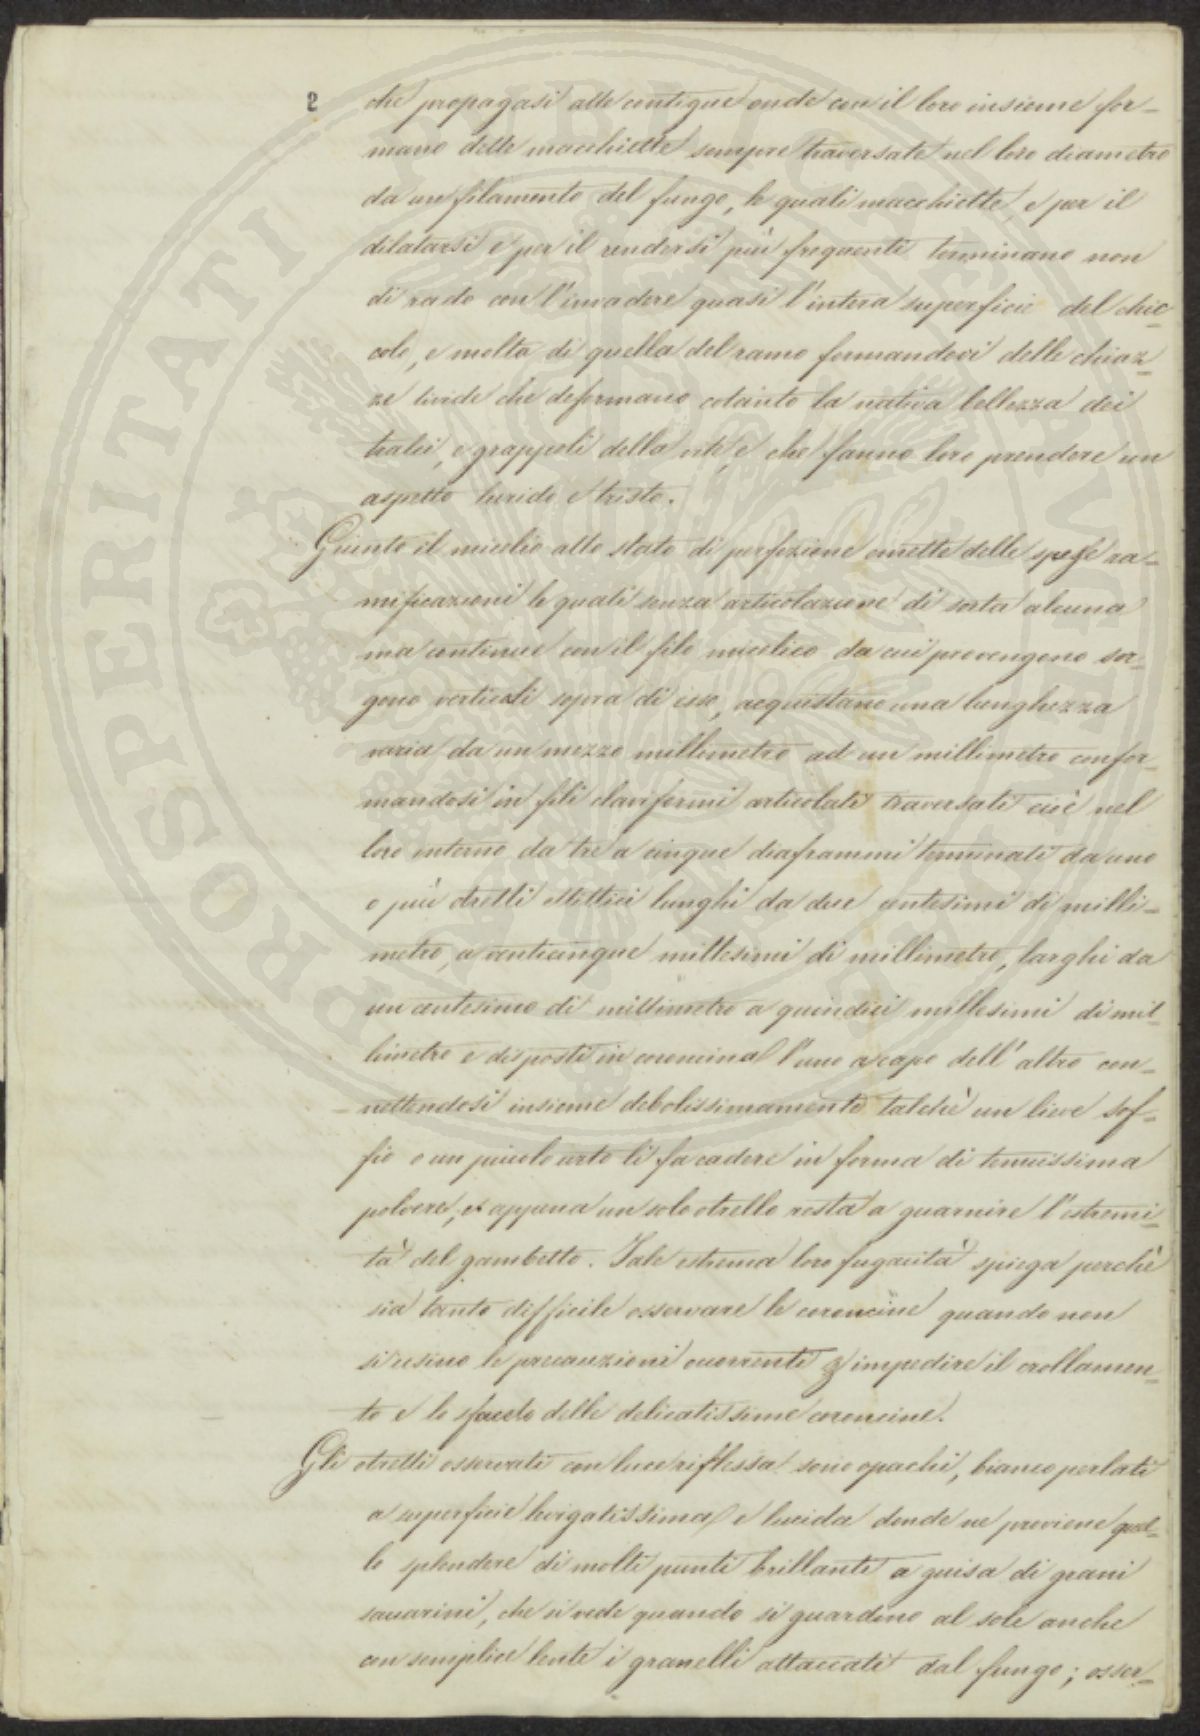 2
che propagasi alle contigue onde con il loro insieme for-
mano delle macchiette sempre traversate nel loro diametro
da un filamento del fungo, le quali macchiette, e per il
dilatarsi e per il rendersi più frequenti terminano non
di rado con l'invadere quasi l'intera superficie del chic-
colo, e molta di quella del ramo formandovi delle chiaz-
ze livide che deformano cotanto la nativa bellezza dei
tralci, e grappoli della vite, e che fanno loro prendere un
aspetto lurido e tristo.
Giunto il micelio allo stato di perfezione emette delle spesse ra-
mificazioni le quali senza articolazione di sorta alcuna
ma continue con il filo micelico da cui provengono sor-
gono verticali sopra di esso, acquistano una lunghezza
varia da un mezzo millimetro ad un millimetro confor-
mandosi in fili claviformi articolati traversati cioè nel
loro interno da tre a cinque diaframmi terminati da uno
o più otrelli ellittici lunghi da due centesimi di milli-
metro, a venticinque millesimi di millimetro, larghi da
un centesimo di millimetro a quindici millesimi di mil-
limetro e disposti in coroncina l'uno a capo dell'altro con-
nettendosi insieme debolissimamente talchè un lieve sof-
fio o un piccolo urto li fa cadere in forma di tenuissima
polvere, e appena un solo otrello resta a guarnire l'estremi-
tà del gambetto. Tale estrema loro fugacità spiega perchè
sia tanto difficile osservare le coroncine quando non
si usino le precauzioni occorrenti p impedire il crollamen-
to e lo sfacelo delle delicatissime coroncine.
Gli otrelli osservati con luce riflessa sono opachi, bianco perlati
a superficie levigatissima e lucida donde ne proviene quel-
lo splendore di molti punti brillanti a guisa di grani
saccarini, che si vede quando si guardino al sole anche
con semplice lente i granelli attaccati dal fungo; osser-
PROSPERITATI PVBLICAE AVGENDAE